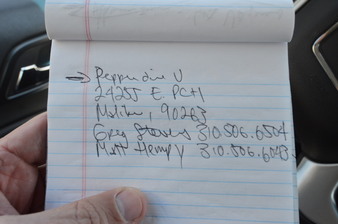 → Pepperdine U
24255 E. PCH
Malibu, 90263
Greg 310.506.6504
Matt Hempy 310.506.6043